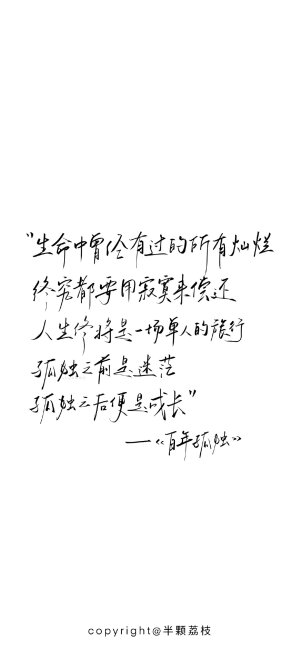 “生命中曾经有过的所有灿烂
终究都要用寂寞来偿还
人生终将是一场单人的旅行
孤独之前是迷茫
孤独之后便是成长”
—《百年孤独》
copyright@半颗荔枝